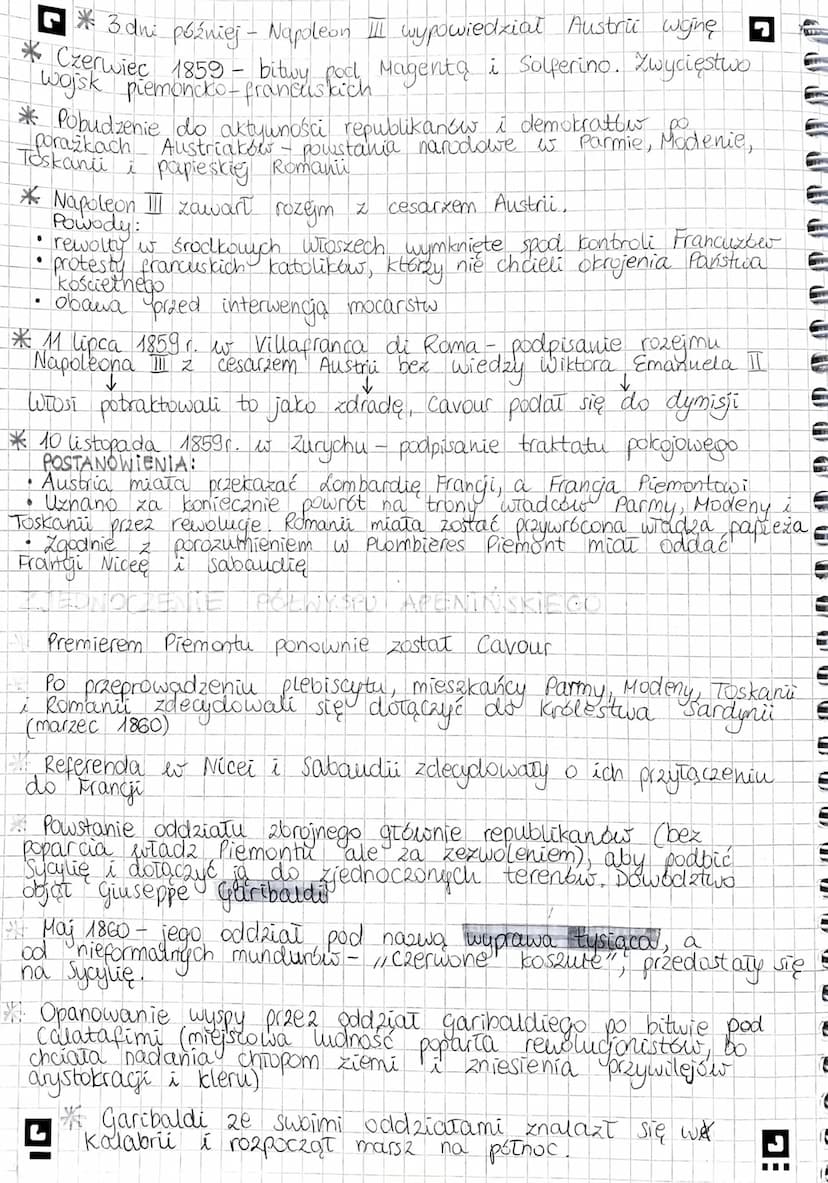 * 3 dni później - Napoleon III wypowiedział Austrii wojnę
* Czerwiec 1859 - bitwy pod Magentą i Solferino. Zwycięstwo
wojsk piemoncko-francuskich
* Pobudzenie do aktywności republikanów i demokratów po
porażkach Austriaków - powstania narodowe w Parmie, Modenie,
Toskanii i papieskiej Romanii
* Napoleon III zawarł rozejm z cesarzem Austrii.
Powody:
• rewolty w środkowych Włoszech wymknięte spod kontroli Francuzów
• protesty francuskich katolików, którzy nie chcieli okrojenia Państwa
kościelnego
• obawa przed interwencją mocarstw
* 11 lipca 1859 r. w Villafranca di Roma - podpisanie rozejmu
Napoleona III z cesarzem Austrii bez wiedzy Wiktora Emanuela II
↓ ↓ ↓
Włosi potraktowali to jako zdradę, Cavour podał się do dymisji
* 10 listopada 1859r. w Zurychu - podpisanie traktatu pokojowego
POSTANOWIENIA:
• Austria miała przekazać Lombardię Francji, a Francja Piemontowi
• Uznano za koniecznie powrót na trony władców Parmy, Modeny i
Toskanii przez rewolucje. Romanii miała zostać przywrócona władza papieża
• Zgodnie z porozumieniem w Plombieres Piemont miał oddać
Francji Niceę i sabaudię
ZJEDNOCZENIE PÓŁWYSPU APENIŃSKIEGO
* Premierem Piemontu ponownie został Cavour
* Po przeprowadzeniu plebiscytu, mieszkańcy Parmy, Modeny, Toskanii
i Romanii zdecydowali się dołączyć do Królestwa Sardynii
(marzec 1860)
* Referenda w Nicei i sabaudii zdecydowały o ich przyłączeniu
do Francji
* Powstanie oddziału zbrojnego głównie republikanów (bez
poparcia władz Piemontu ale za zezwoleniem), aby podbić
Sycylię i dołączyć ją do zjednoczonych terenów. Dowództwo
objął Giuseppe Garibaldi
* Maj 1860 - jego oddział pod nazwą wyprawa tysiąca, a
od nieformalnych mundurów - „czerwone koszule", przedostały się
na Sycylię.
* Opanowanie wyspy przez oddział Garibaldiego po bitwie pod
Calatafimi (miejscowa ludność poparła rewolucjonistów, bo
chciała nadania chłopom ziemi i zniesienia przywilejów
arystokracji i kleru)
* Garibaldi ze swoimi oddziałami znalazł się w
Kalabrii i rozpoczął marsz na północ.